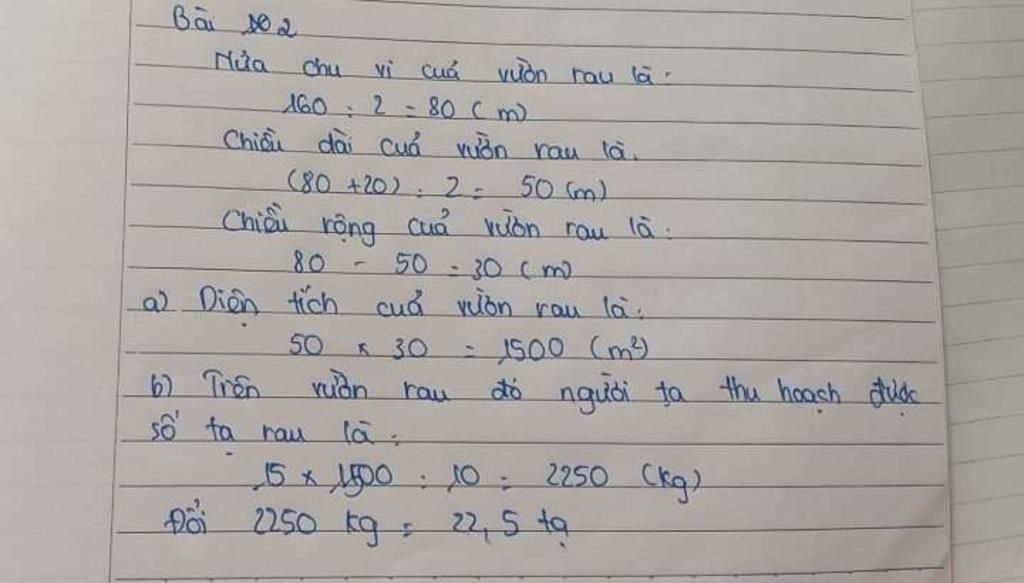 Bài 2
Nửa chu vi của vườn rau là:
160 : 2 = 80 (m)
Chiều dài của vườn rau là:
(80 + 20) : 2 = 50 (m)
Chiều rộng của vườn rau là:
80 - 50 = 30 (m)
a) Diện tích của vườn rau là:
50 x 30 = 1500 (m²)
b) Trên vườn rau đó người ta thu hoạch được
số tạ rau là:
15 x 1500 : 10 = 2250 (kg)
Đổi 2250 kg = 22,5 tạ